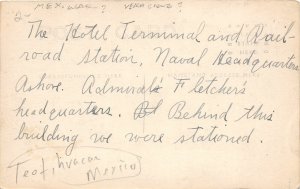 MEXICAN? VERA CRUZ?
2-
The Hotel Terminal and Rail-
road station, Naval Headquarters
Ashore. Admiral's Fletcher's
headquarters. Behind this
building we were stationed.
Teotihuacan
Mexico